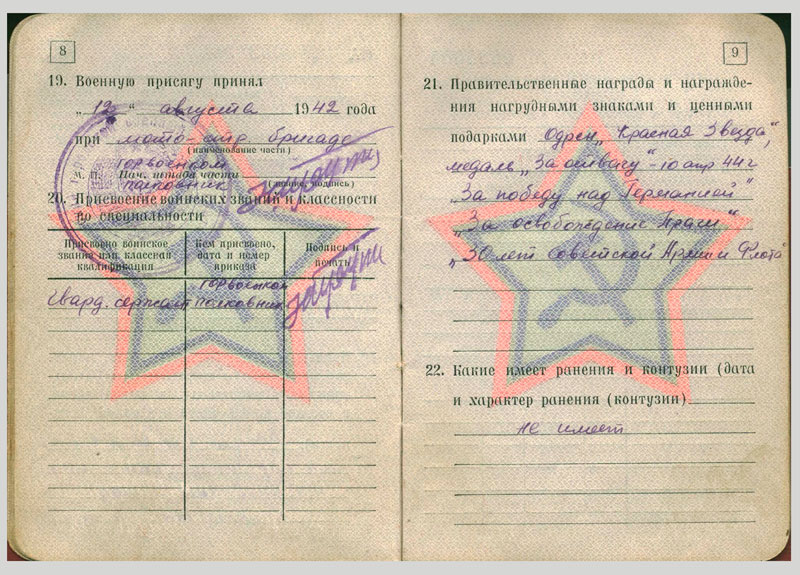 8
19. Военную присягу принял
„ 12 “ августа 1942 года
при мото-стр бригаде
(наименование части)
горвоенком
М. П. Нач. штаба части
полковник
(звание, подпись)
20. Присвоение воинских званий и классности
по специальности
Присвоено воинское звание или классная квалификация
Кем присвоено, дата и номер приказа
Подпись и печать
горвоенком
Гвард. сержант полковник
9
21. Правительственные награды и награжде-
ния нагрудными знаками и ценными
подарками Орден „Красная Звезда“,
медаль „За отвагу“ - 10 апр 44 г
„За победу над Германией“
„За освобождение Праги“
„30 лет Советской Армии и Флота“
22. Какие имеет ранения и контузии (дата
и характер ранения (контузии)
не имеет